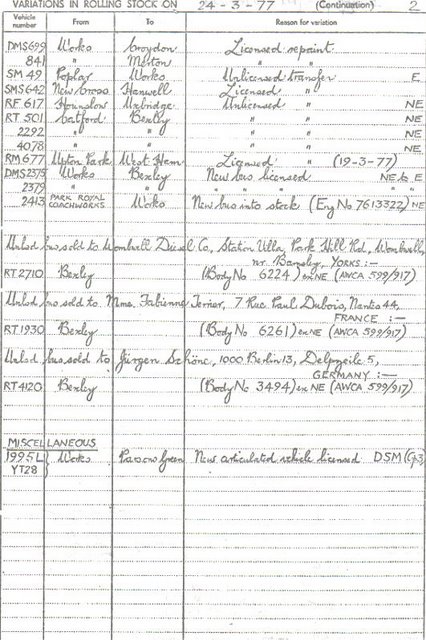 VARIATIONS IN ROLLING STOCK ON 24-3-77 (Continuation) 2
Vehicle number From To Reason for variation
DMS699 Works Croydon Licensed repaint
841 " Merton " "
SM 49 Poplar Works Unlicensed transfer E
SMS642 New Cross Hanwell Licensed "
RF 617 Hounslow Uxbridge Unlicensed " NE
RT 501 Catford Bexley " " NE
2292 " " " " NE
4078 " " " " NE
RM677 Upton Park West Ham Licensed " (19-3-77)
DMS2375 Works Bexley New bus licensed NE to E
2379 " " " " " " " "
2413 PARK ROYAL COACHWORKS Works New bus into stock (Eng No 7613322) NE
Unlsd bus sold to Wombwell Diesel Co, Station Villa, Park Hill Rd, Wombwell,
nr. Barnsley, YORKS :—
RT2710 Bexley (Body No 6224) ex NE (AWCA 599/917)
Unlsd bus sold to Mme. Fabienne Terrier, 7 Rue Paul Dubois, Nantes 44,
FRANCE :—
RT1930 Bexley (Body No 6261) ex NE (AWCA 599/917)
Unlsd bus sold to Jürgen Schöne, 1000 Berlin 13, 5,
GERMANY :—
RT4120 Bexley (Body No 3494) ex NE (AWCA 599/917)
MISCELLANEOUS
1995L } Works Parsons Green New articulated vehicle licensed DSM (Gp3)
YT28